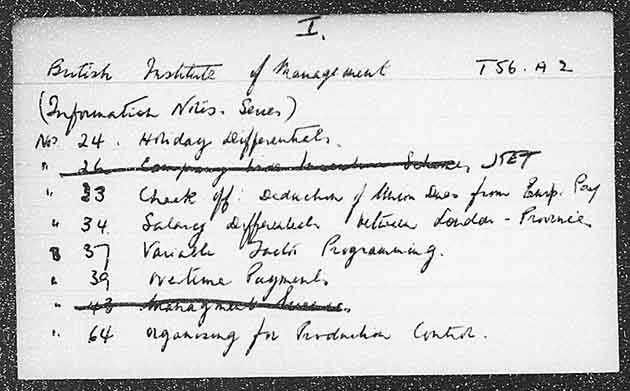 I.
British Institute of Management T56.A2
(Information Notes. Series)
No. 24. Holiday Differentials.
" 26 Company Incentive Schemes, JSET
" 33 Check off: Deduction of Union Dues from Emp. Pay
" 34. Salary Differentials between London - Provinces
" 37 Variable Factor Programming.
" 39 overtime Payments
" 43 Management
" 64 organising for Production Control.